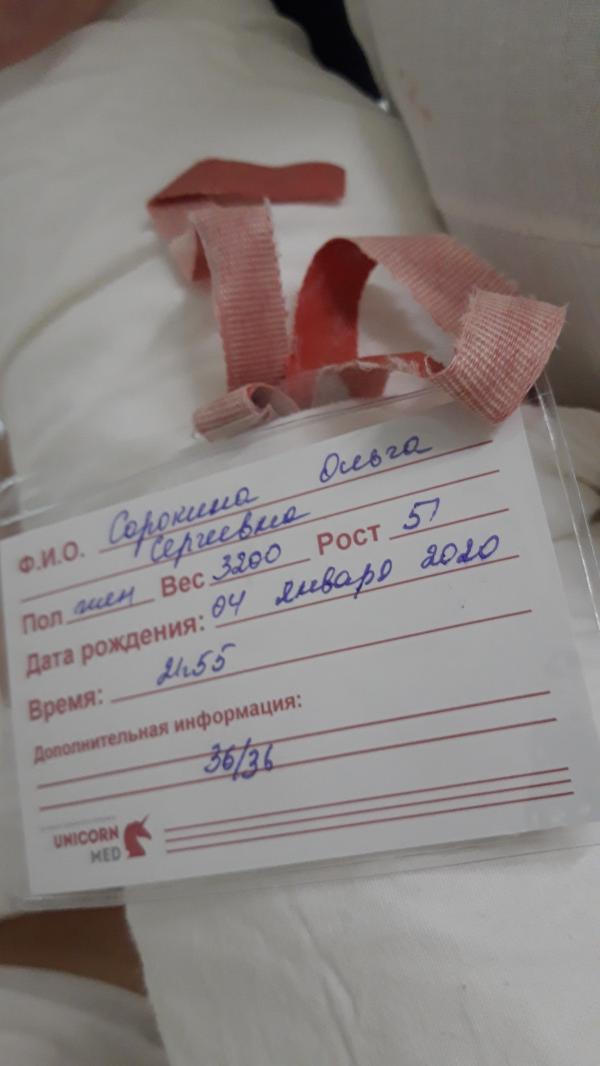 Ф.И.О. Сорокина Ольга
Сергеевна
Пол жен Вес 3200 Рост 51
Дата рождения: 04 января 2020
Время: 21.55
Дополнительная информация:
36/36
UNICORN
MED